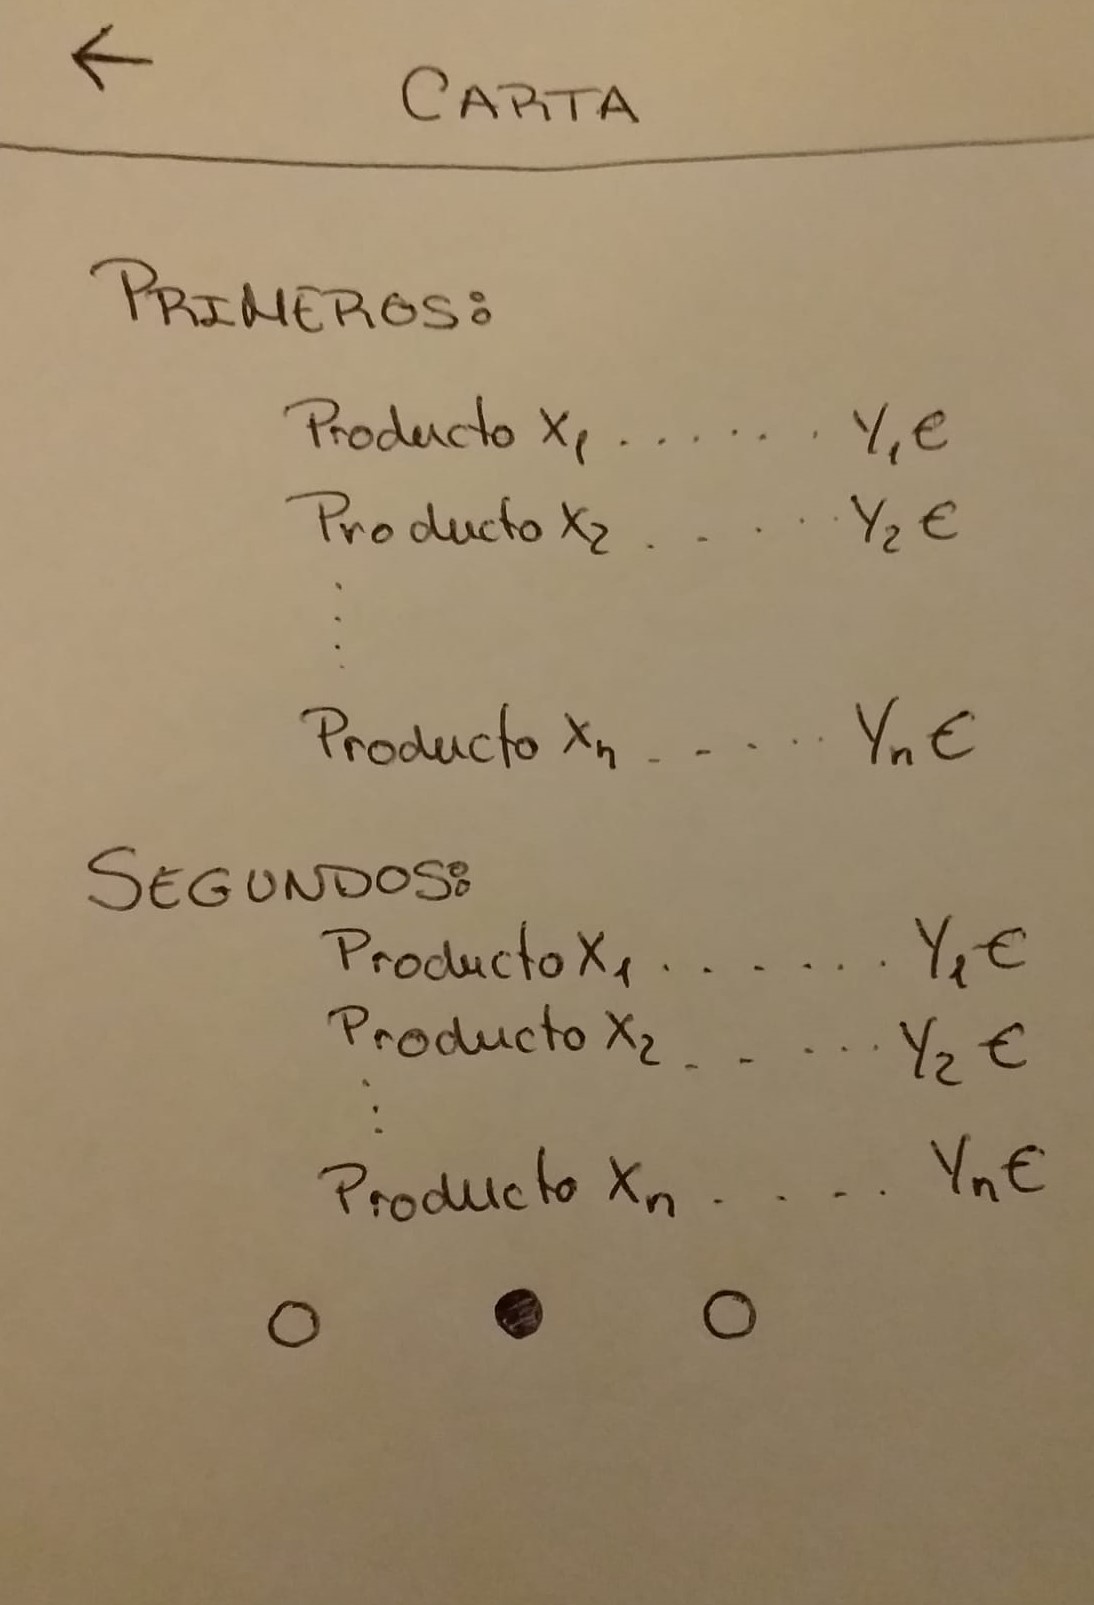 ←
CARTA
PRIMEROS:
Producto X₁ ....... Y₁€
Producto X₂ ..... Y₂€
⋮
Producto Xₙ ..... Yₙ€
SEGUNDOS:
Producto X₁ ....... Y₁€
Producto X₂ ...... Y₂€
⋮
Producto Xₙ ..... Yₙ€